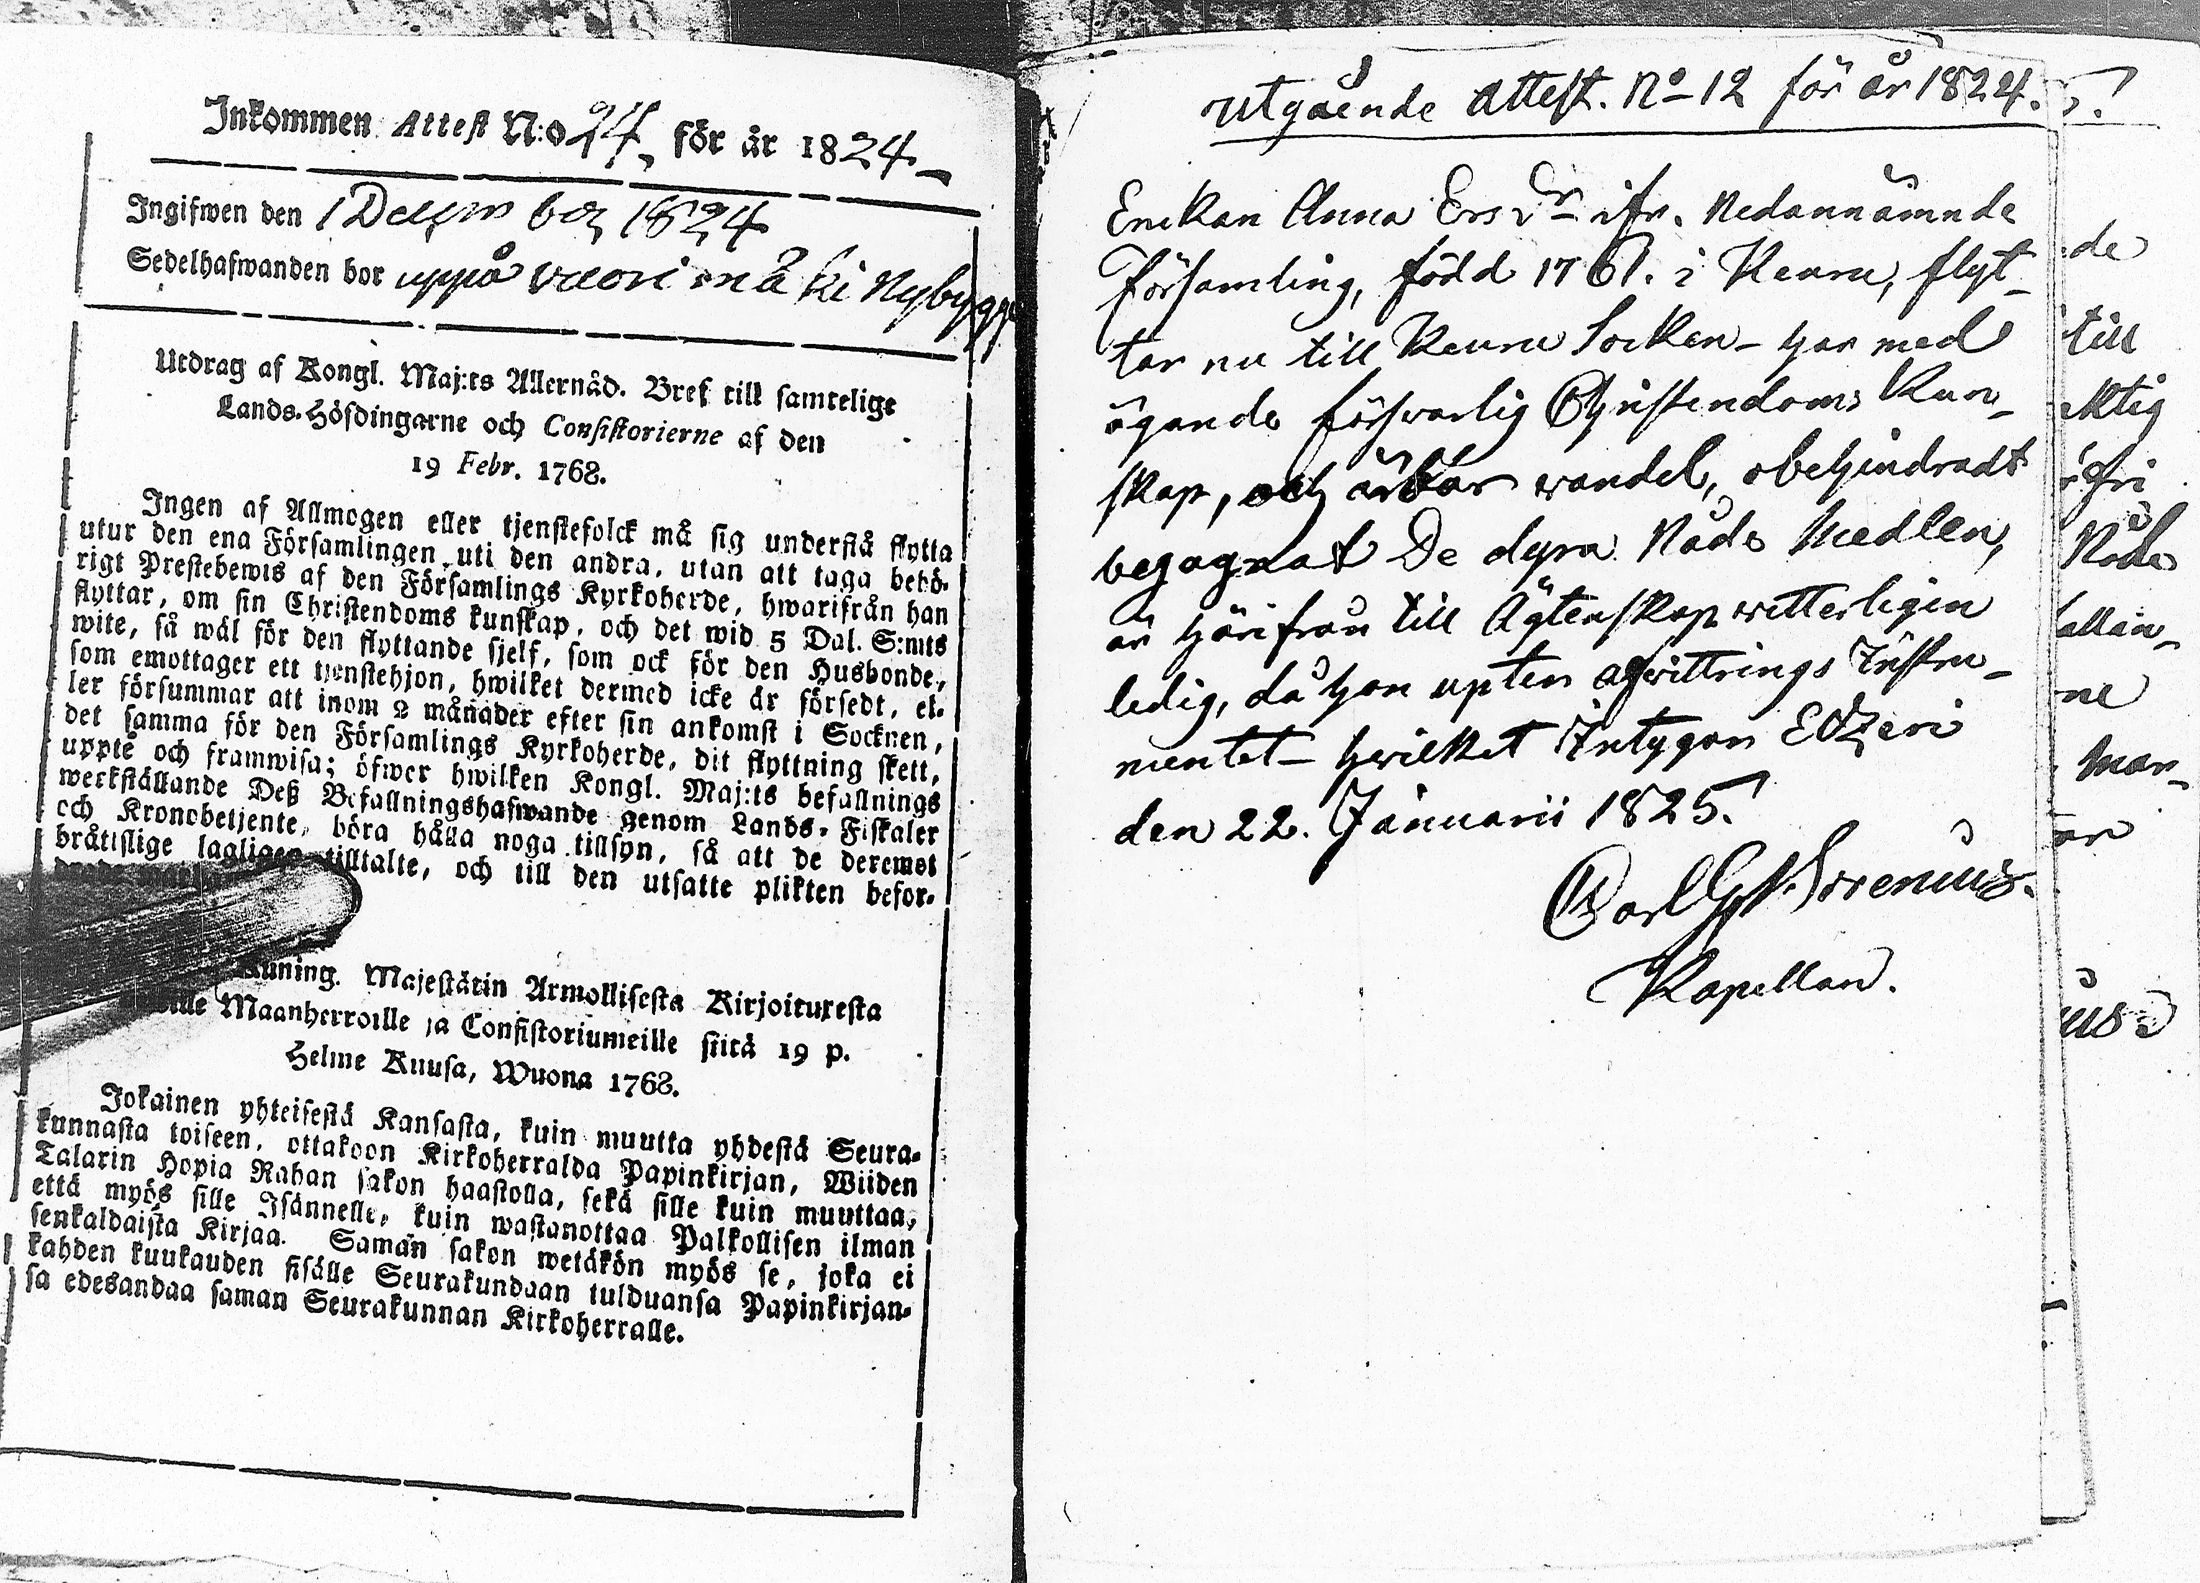 Inkommen Attest N:o 24, för år 1824
Ingifwen den 1 December 1824
Sedelhafwanden bor uppå vuori mäki Nybygge
Utdrag af Kongl. Maj:ts Allernåd. Bref till samtelige
Lands-Höfdingarne och Consistorierne af den
19 Febr. 1768.
Ingen af Allmogen eller tjenstefolck må sig understå flytta
utur den ena Församlingen uti den andra, utan att taga behö-
rigt Prestebewis af den Församlings Kyrkoherde, hwarifrån han
flyttar, om sin Christendoms kunskap, och det wid 5 Dal. S:mts
wite, så wäl för den flyttande sjelf, som ock för den Husbonde,
som emottager ett tjenstehjon, hwilket dermed icke är försedt, el-
ler försummar att inom 2 månader efter sin ankomst i Socknen,
det samma för den Församlings Kyrkoherde, dit flyttning skett,
uppte och framwisa; öfwer hwilken Kongl. Maj:ts befallnings
werkställande Deß Befallningshafwande genom Lands-Fiskaler
och Kronobetjente, böra hålla noga tillsyn, så att de deremot
bråttslige lagligen tilltalte, och till den utsatte plikten befor-
Kuning. Majestätin Armollisesta Kirjoituxesta
Maanherroille ja Consistoriumeille siitä 19 p.
Helme Kuusa, Wuona 1768.
Jokainen yhteisestä Kansasta, kuin muutta yhdestä Seura-
kunnasta toiseen, ottakoon Kirkoherralda Papinkirjan, Wiiden
Talarin Hopia Rahan sakon haastolla, sekä sille kuin muuttaa,
että myös sille Isännelle, kuin wastanottaa Palkollisen ilman
senkaldaista Kirjaa. Saman sakon wetäkön myös se, joka ei
kahden kuukauden sisälle Seurakundaan tulduansa Papinkirjan-
sa edesandaa saman Seurakunnan Kirkoherralle.
utgående attest. No 12 för år 1824.
Enckan Anna Ersdr ifr. nedannämnde
Församling, född 1761. i Keuru, flyt-
tar nu till Keuru Socken - har med
ägande förswarlig Christendoms Kun-
skap, och ärbar wandel, obehindradt
begagnat De dyra Nåds Medlen,
är härifrån till Ägtenskap witterligen
ledig, då hon upter afwittrings Instru-
mentet - hwilket Intygar Etzeri
den 22. Januarii 1825.
Kapellan.
de
till
ktig
fri
Nåde
allan-
ne
man-
ar
us